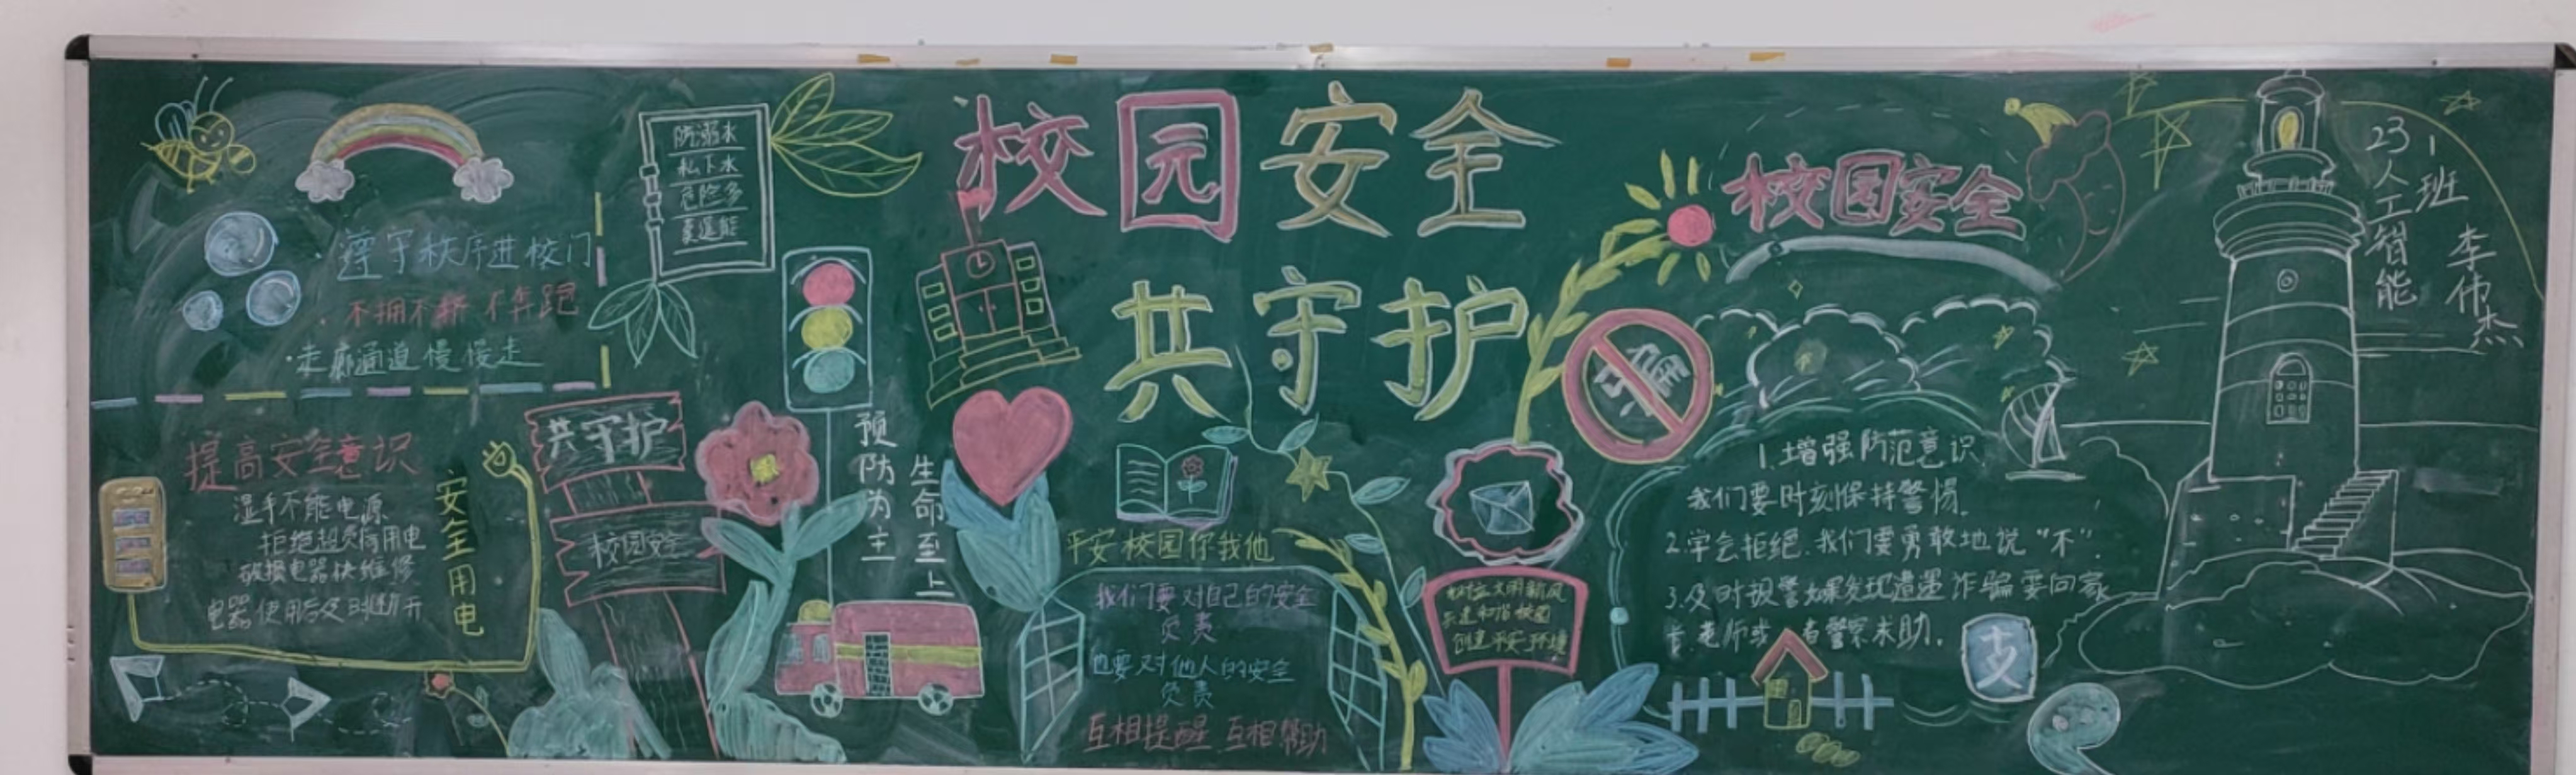 校园安全
共守护
遵守秩序进校门
不拥不挤 不奔跑
走廊通道慢慢走
防溺水
私下水
危险多
莫逞能
提高安全意识
湿手不能电源
拒绝超负荷用电
破损电器快维修
电器使用后及时断开
安全用电
共守护
校园安全
预防为主
生命至上
平安校园你我他
我们要对自己的安全
负责
也要对他人的安全
负责
互相提醒 互相帮助
树立文明新风
共建和谐校园
创建平安环境
校园安全
1.增强防范意识
我们要时刻保持警惕.
2.学会拒绝.我们要勇敢地说"不".
3.及时报警如果发现遭遇诈骗要向家
长.老师或者警察求助.
23人工智能
1班
李伟杰